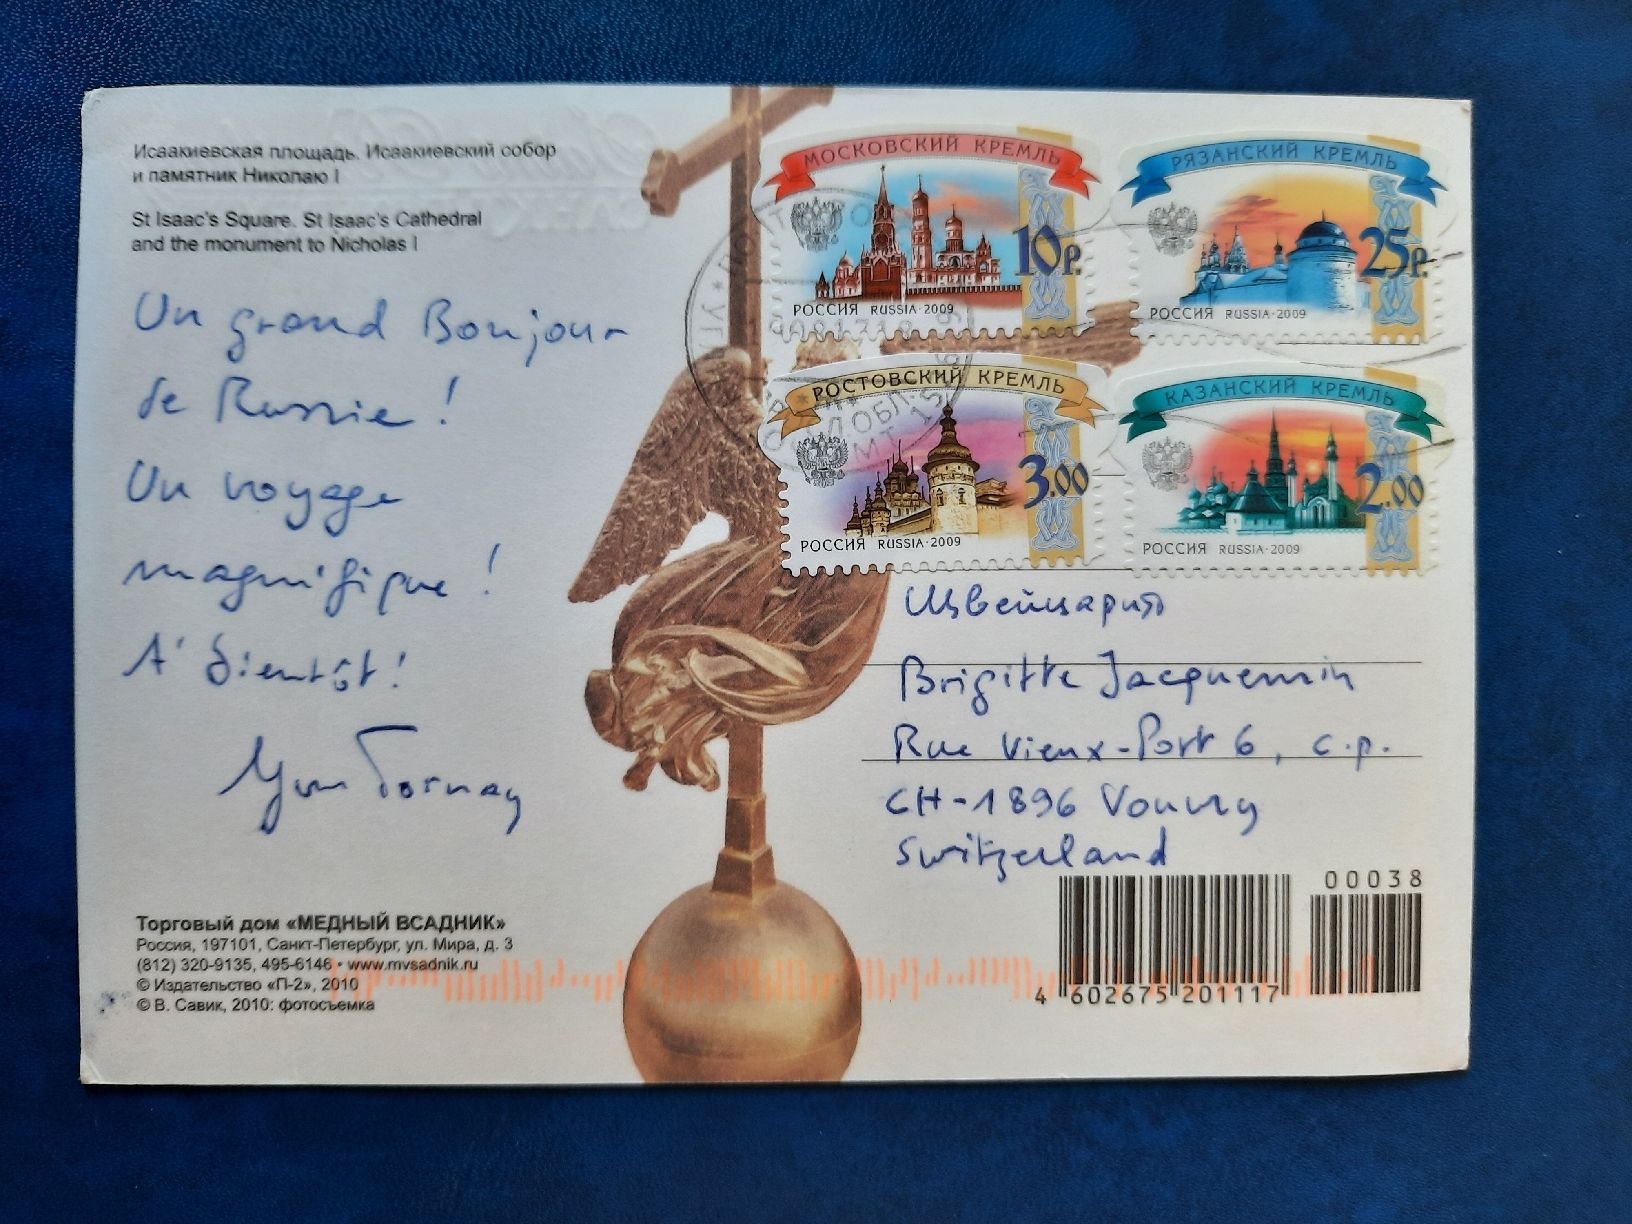 Исаакиевская площадь. Исаакиевский собор
и памятник Николаю I
St Isaac's Square. St Isaac's Cathedral
and the monument to Nicholas I
Un grand Bonjour
de Russie !
Un voyage
magnifique !
A' bientôt !
Tornay
Торговый дом «МЕДНЫЙ ВСАДНИК»
Россия, 197101, Санкт-Петербург, ул. Мира, д. 3
(812) 320-9135, 495-6146 • www.mvsadnik.ru
© Издательство «П-2», 2010
© В. Савик, 2010: фотосъемка
МОСКОВСКИЙ КРЕМЛЬ
10р.
РОССИЯ RUSSIA·2009
РЯЗАНСКИЙ КРЕМЛЬ
25р.
РОССИЯ RUSSIA·2009
РОСТОВСКИЙ КРЕМЛЬ
3.00
РОССИЯ RUSSIA·2009
КАЗАНСКИЙ КРЕМЛЬ
2.00
РОССИЯ RUSSIA·2009
Швейцария
Brigitte Jacquemin
Rue Vieux-Port 6, c.p.
CH-1896 Vouvry
Switzerland
00038
4 602675 201117